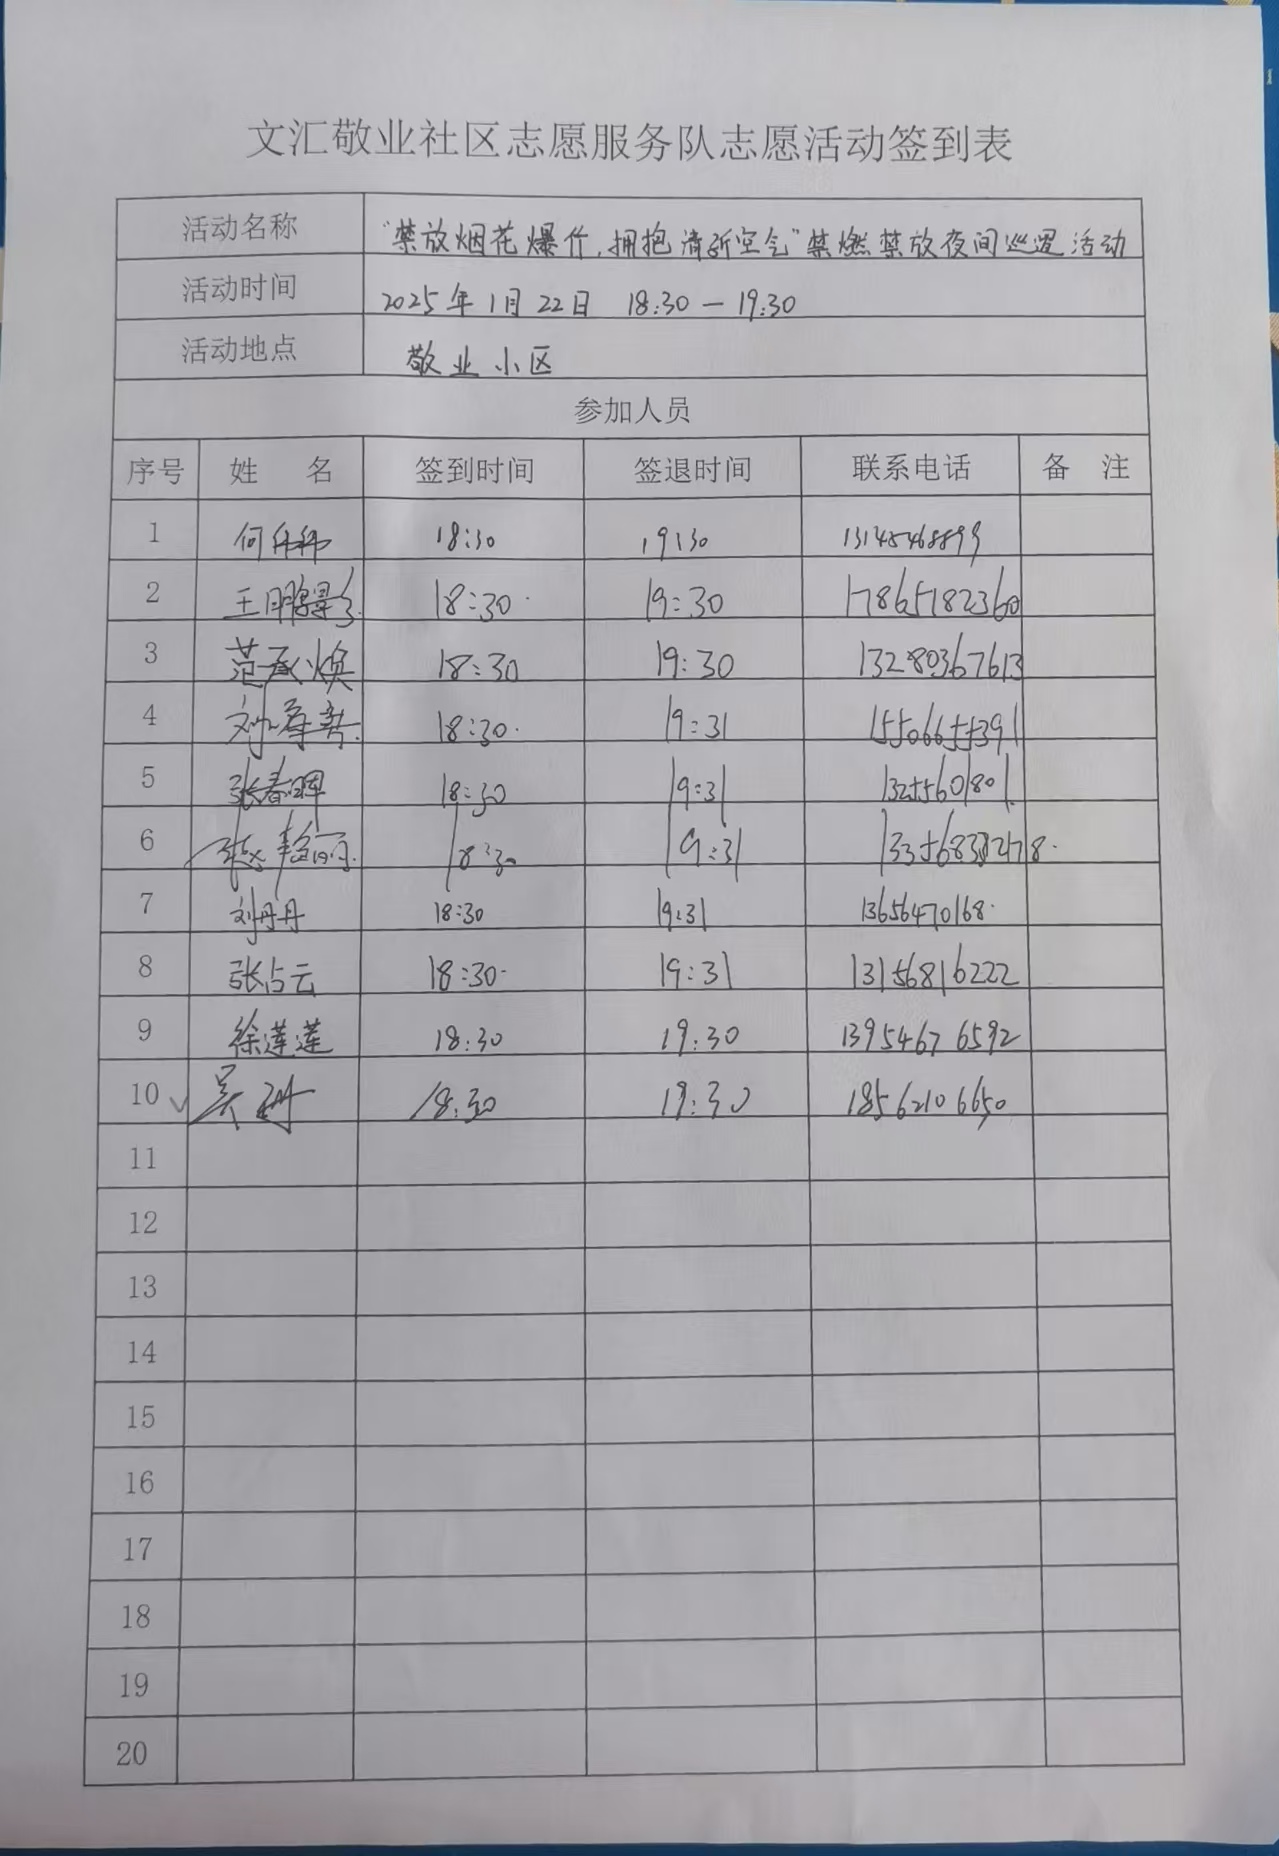 文汇敬业社区志愿服务队志愿活动签到表
活动名称 "禁放烟花爆竹,拥抱清新空气"禁燃禁放夜间巡逻活动
活动时间 2025年1月22日 18:30—19:30
活动地点 敬业小区
参加人员
序号 姓 名 签到时间 签退时间 联系电话 备 注
1 何 18:30 19:30 13145468899
2 王鹏 18:30 19:30 17865782360
3 范承焕 18:30 19:30 13280367613
4 刘 18:30 19:31
5 张春晖 18:30 19:31 13255601801
6 18:30 19:31
7 刘丹丹 18:30 19:31 13656470168
8 张占云 18:30 19:31 13156816222
9 徐莲莲 18:30 19:30 13954676592
10 吴 18:30 19:30 18562106650
11
12
13
14
15
16
17
18
19
20